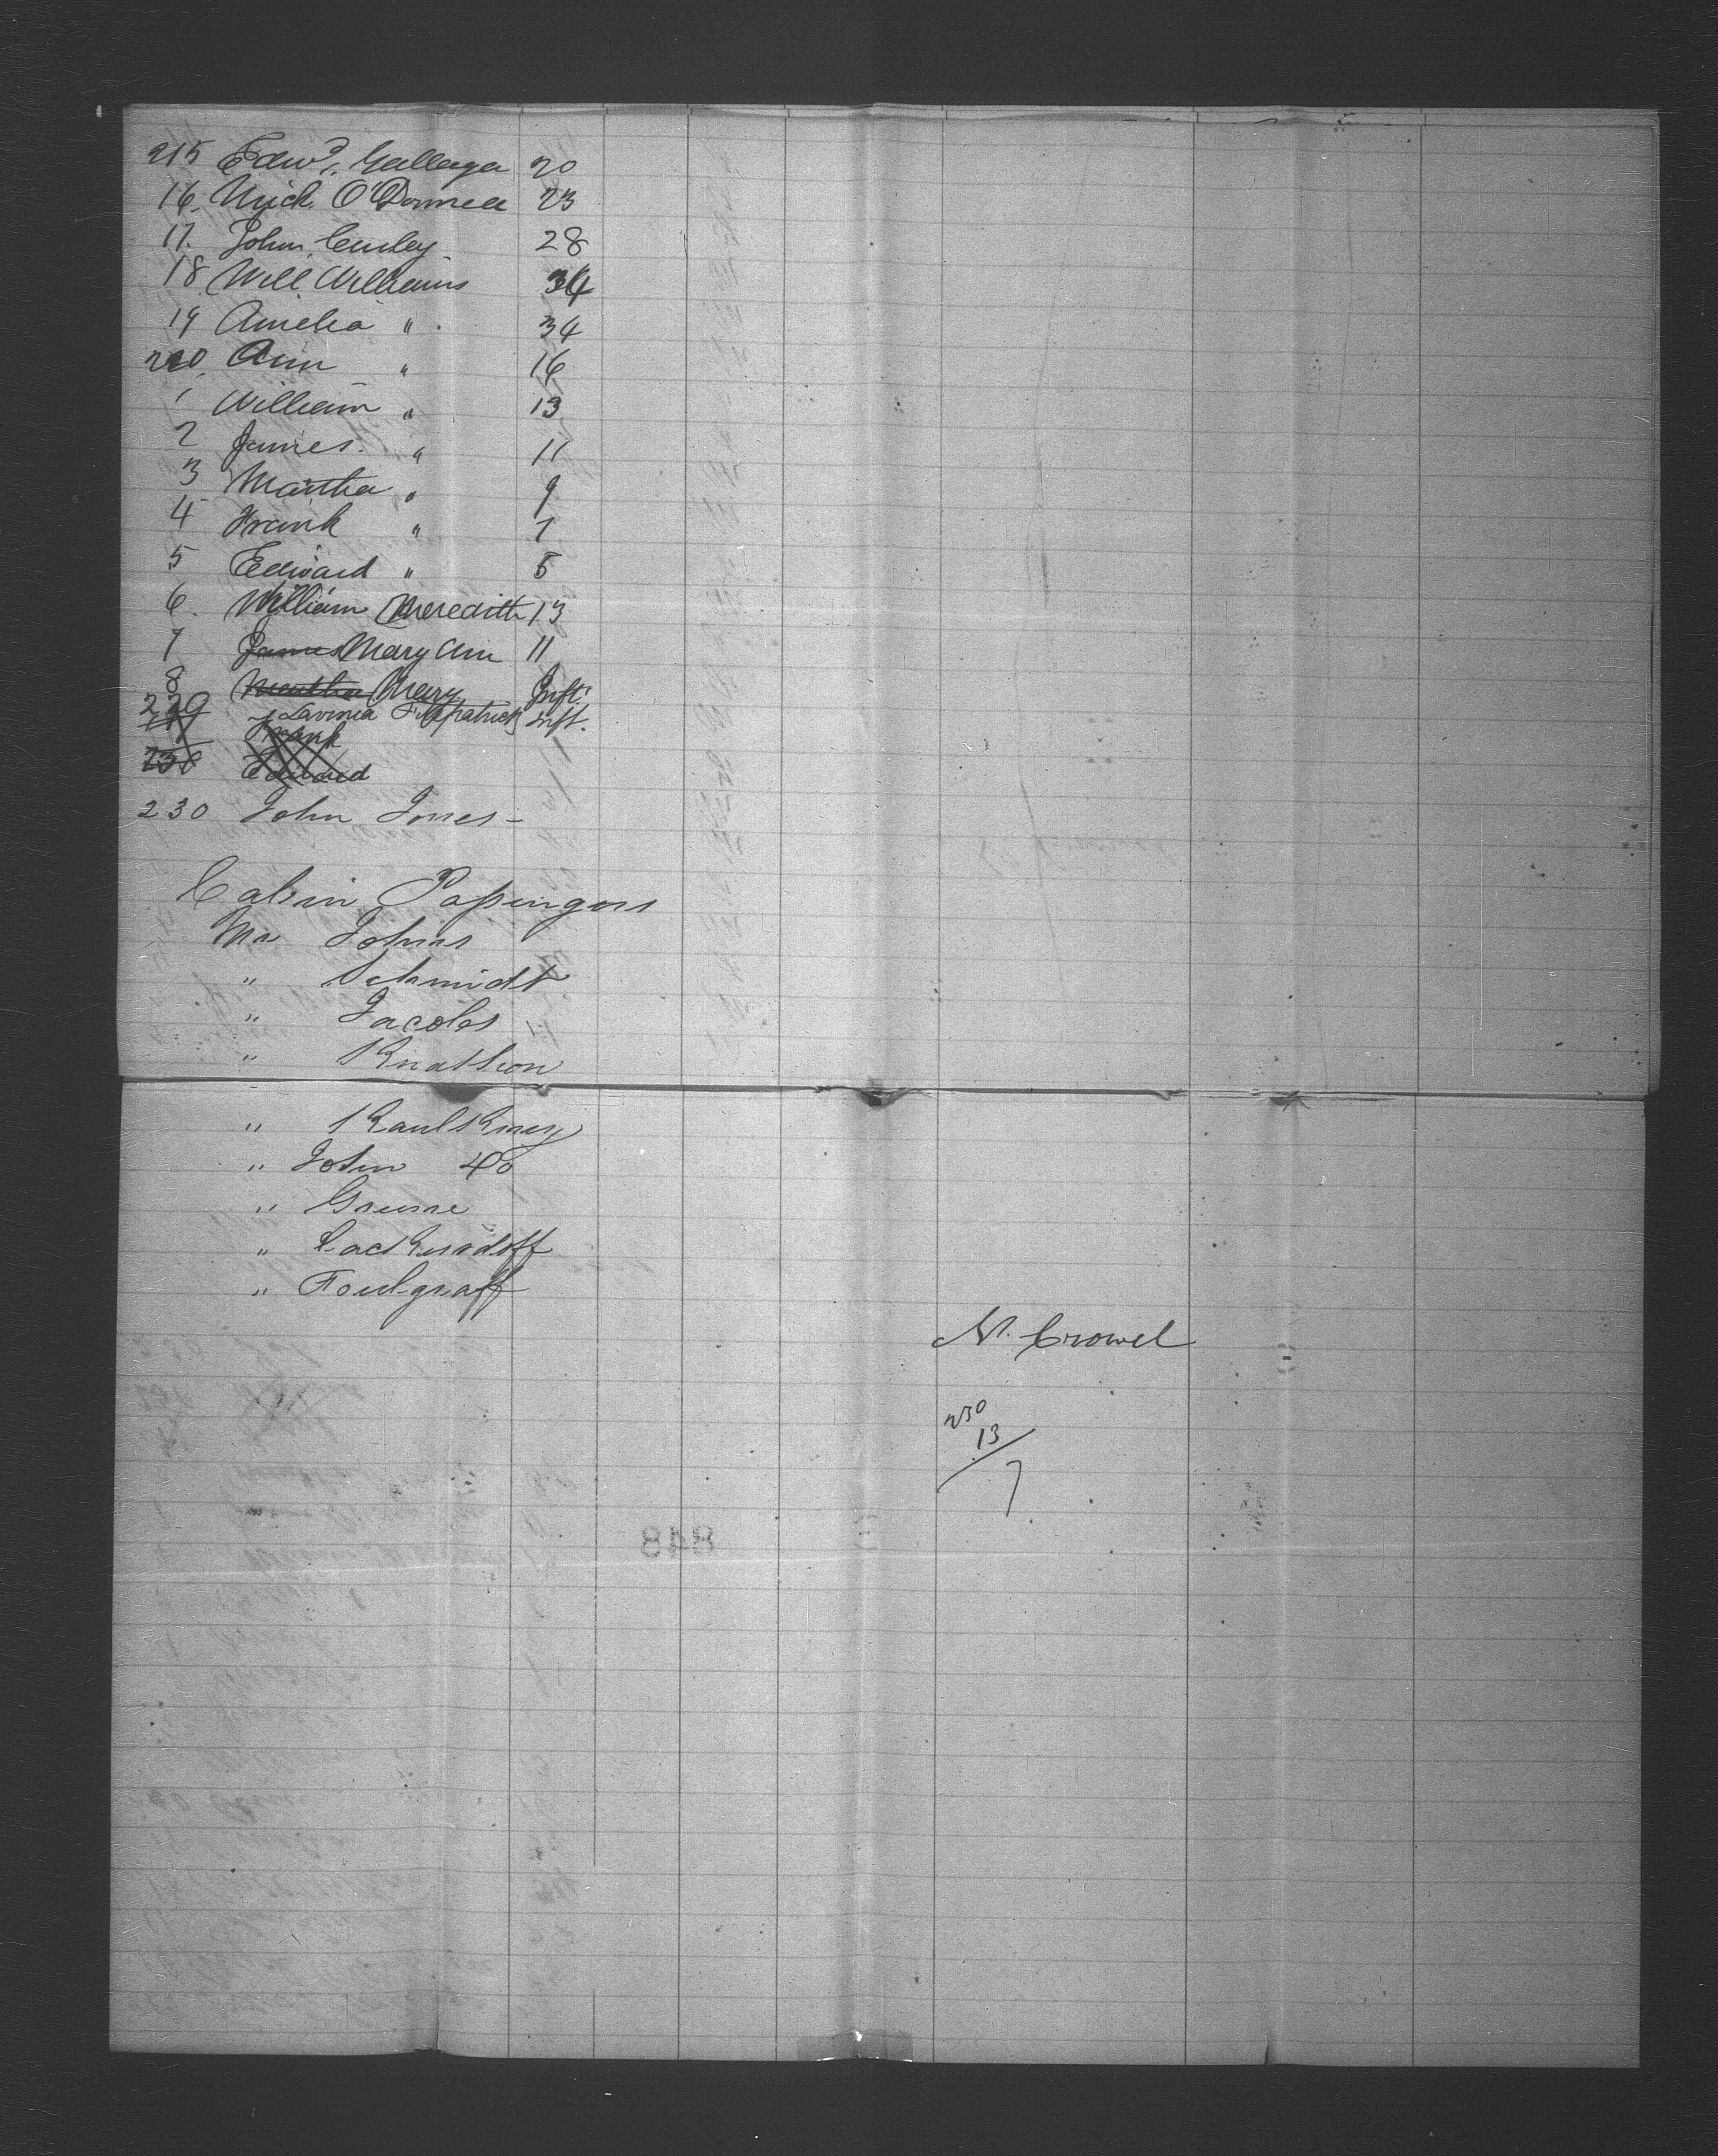 215 Edwd. Gallager 20
16. Mich. O'Donnell 23
17. John Curley 28
18. Will Williams 34
19 Amelia " . 34
220. Ann " 16
1 William " 13
2 James. " 11
3 Martha " 9
4 Frank " 7
5 Edward " 5
6. William Meredith 13
7 James Mary Ann 11
8 Martha Mary Inft.
229 Lavinia Fitzpatrick Inft.
Frank
230 Edward
230 John Jones -
Cabin Passingers
Mr Johns
" Schmidt
" Jacobs
"
"
" John Do
"
"
" Foulgraff
N. Crowel
230
13
7
848